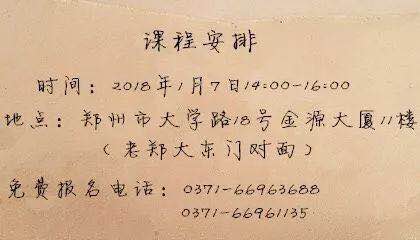 课程安排
时间：2018年1月7日14:00-16:00
地点：郑州市大学路18号金源大厦11楼
（老郑大东门对面）
免费报名电话：0371-66963688
0371-66961135